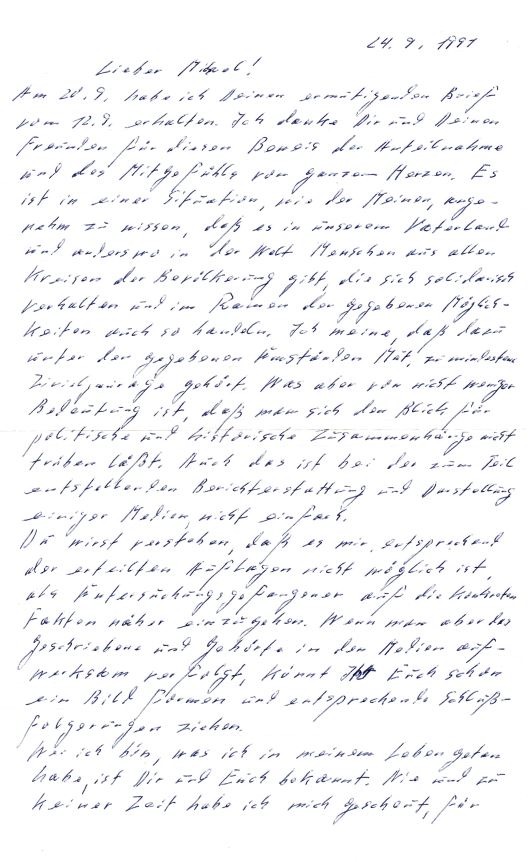 24.9.1991
Lieber Michael!
Am 20.9. habe ich Deinen ermutigenden Brief
vom 12.9. erhalten. Ich danke Dir und Deinen
Freunden für diesen Beweis der Anteilnahme
und des Mitgefühls von ganzem Herzen. Es
ist in einer Situation, wie der Meinen, ange-
nehm zu wissen, daß es in unserem Vaterland
und anderswo in der Welt Menschen aus allen
Kreisen der Bevölkerung gibt, die sich solidarisch
verhalten und im Ramen der gegebenen Möglich-
keiten auch so handeln. Ich meine, daß dazu
unter den gegebenen Umständen Mut, zumindestens
Zivilcourage gehört. Was aber von nicht weniger
Bedeutung ist, daß man sich den Blick für
politische und historische Zusammenhänge nicht
trüben läßt. Auch das ist bei der zum Teil
entstellenden Berichterstattung und Darstellung
einiger Medien, nicht einfach.
Du wirst verstehen, daß es mir, entsprechend
der erteilten Auflagen nicht möglich ist,
als Untersuchungsgefangener auf die konkreten
Fakten näher einzugehen. Wenn man aber das
Geschriebene und Gehörte in den Medien auf-
merksam verfolgt, könnt Ihr Euch schon
ein Bild formen und entsprechende Schluß-
folgerungen ziehen.
Wer ich bin, was ich in meinem Leben getan
habe, ist Dir und Euch bekannt. Nie und zu
keiner Zeit habe ich mich gescheut, für